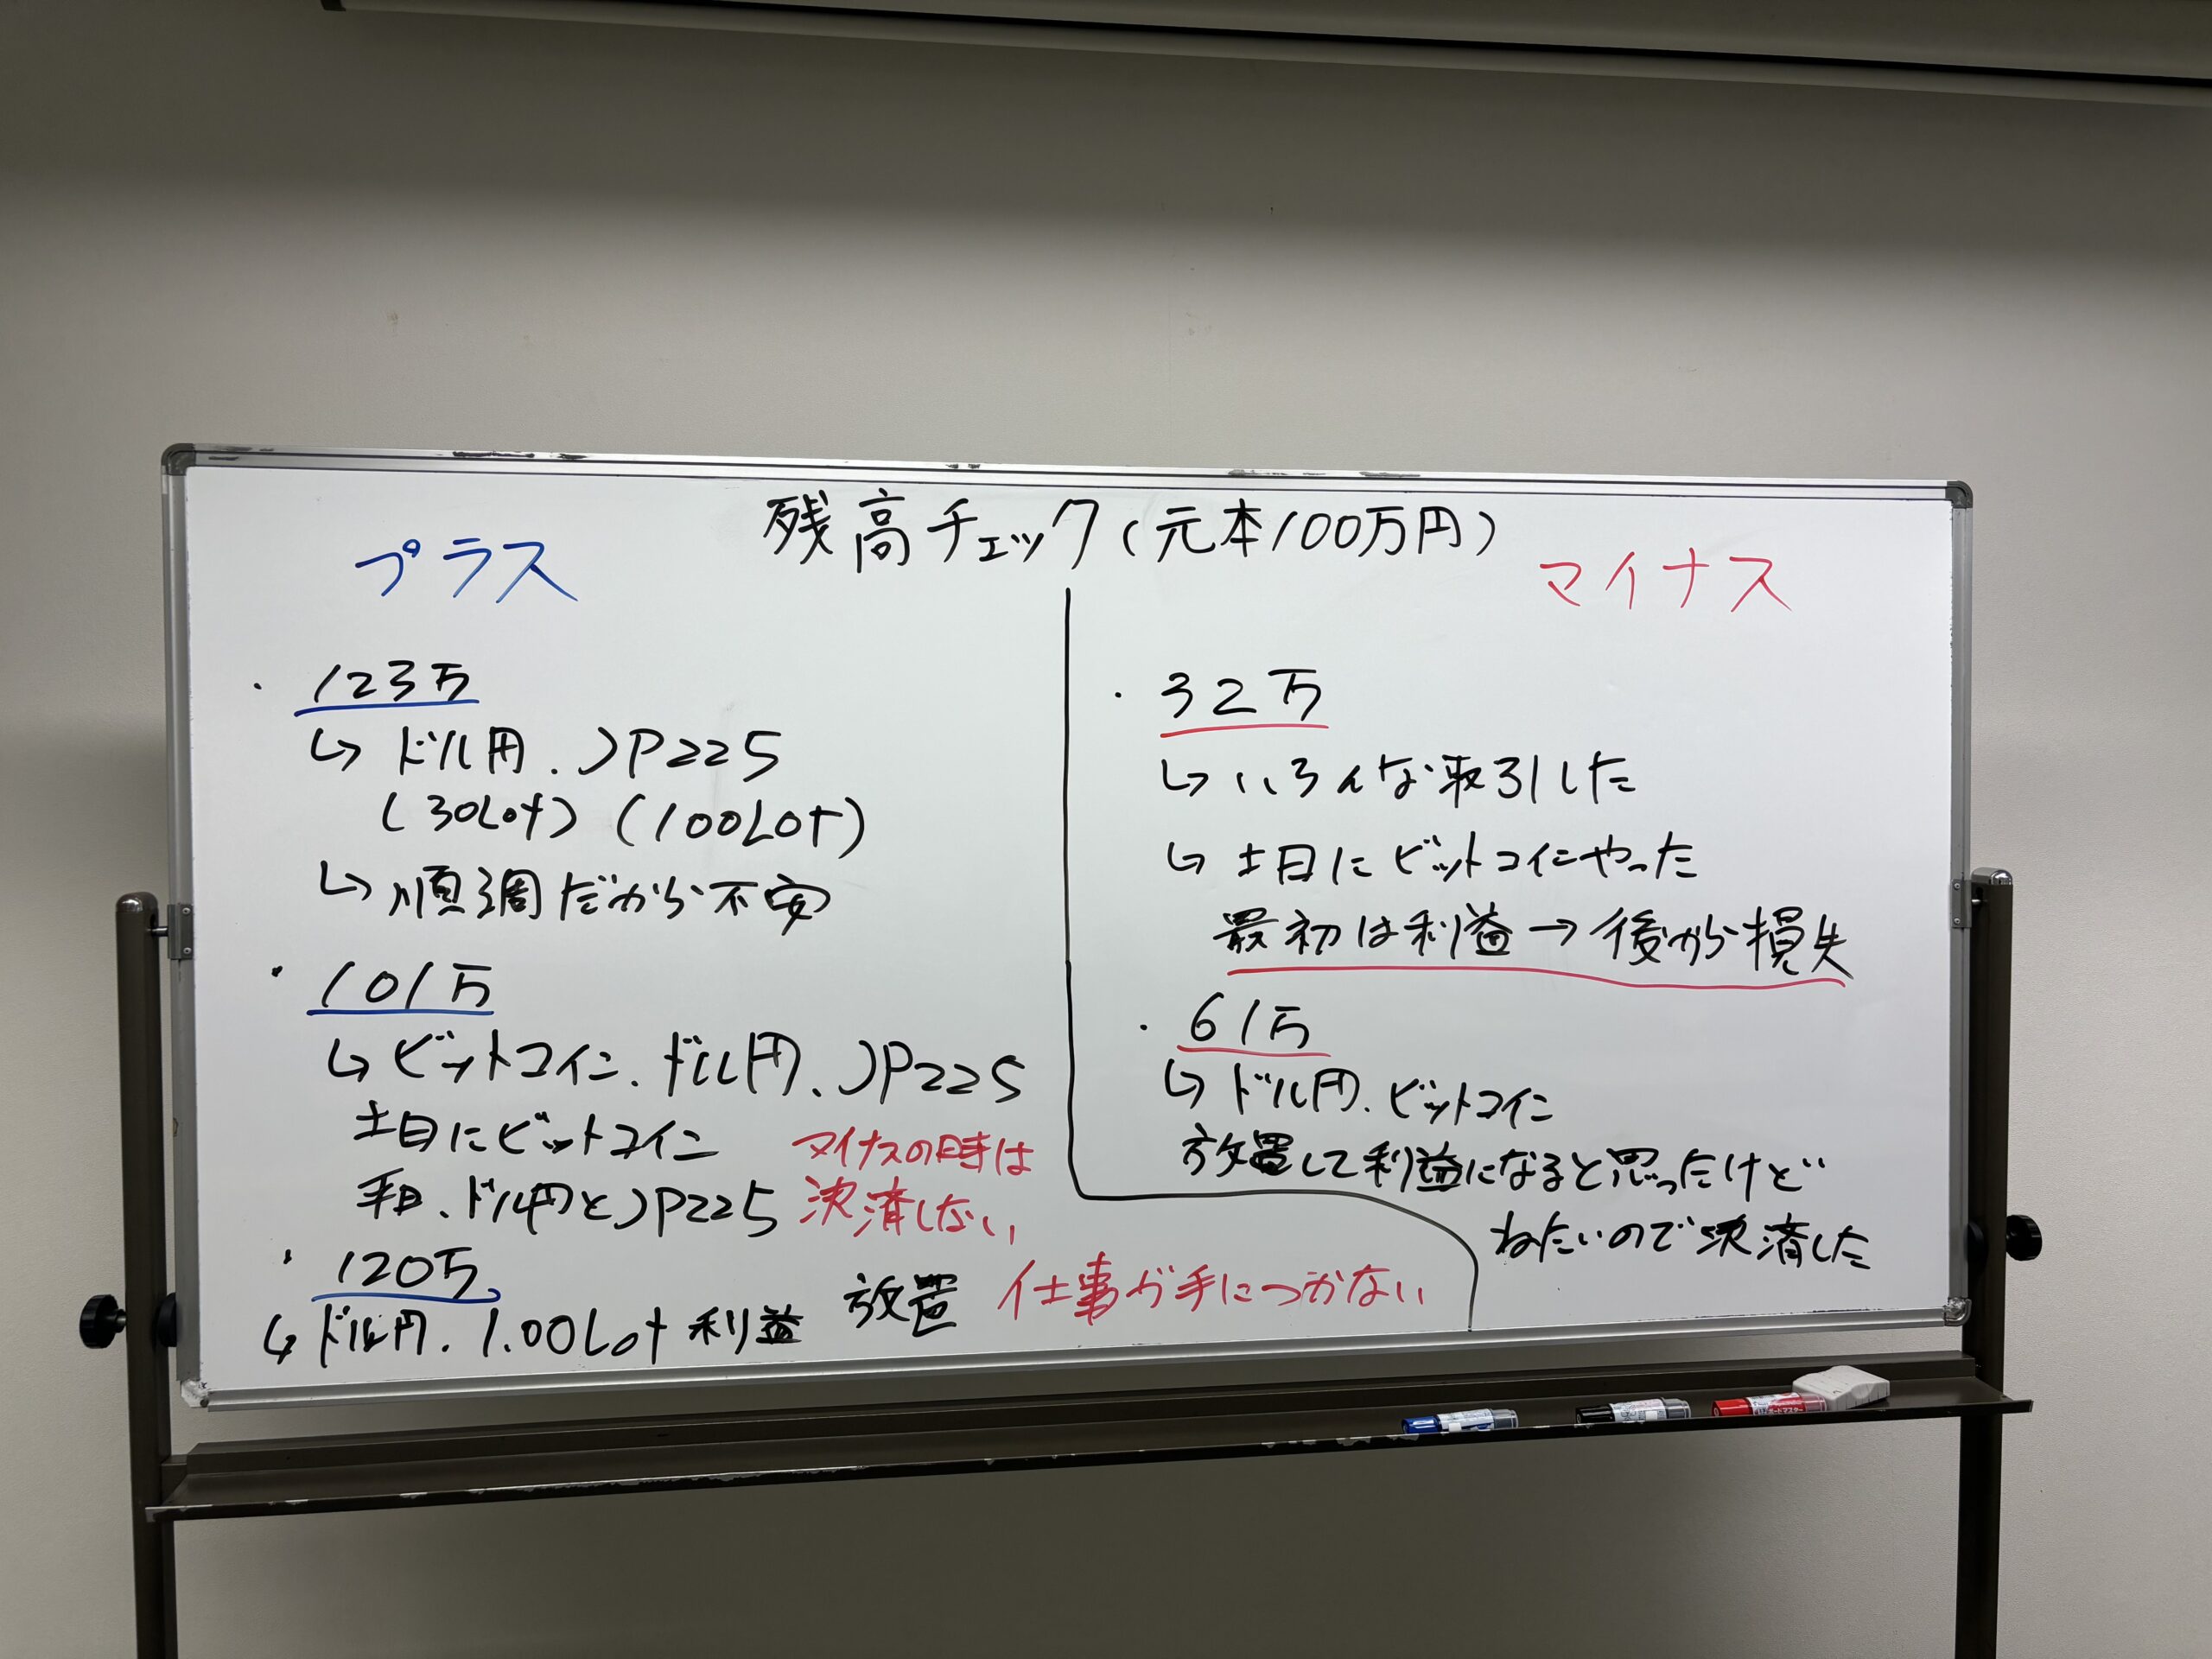 残高チェック(元本100万円)
プラス
・123万
↳ドル円.JP225
(30Lot)(100Lot)
↳順調だから不安
・101万
↳ビットコイン.ドル円、JP225
土日にビットコイン
平日、ドル円とJP225
マイナスの時は
決済しない
・120万
↳ドル円.1.00Lot利益 放置 仕事が手につかない
マイナス
・32万
↳いろんな取引した
↳土日にビットコインやった
最初は利益→後から損失
・61万
↳ドル円.ビットコイン
放置して利益になると思ったけど
ねたいので決済した